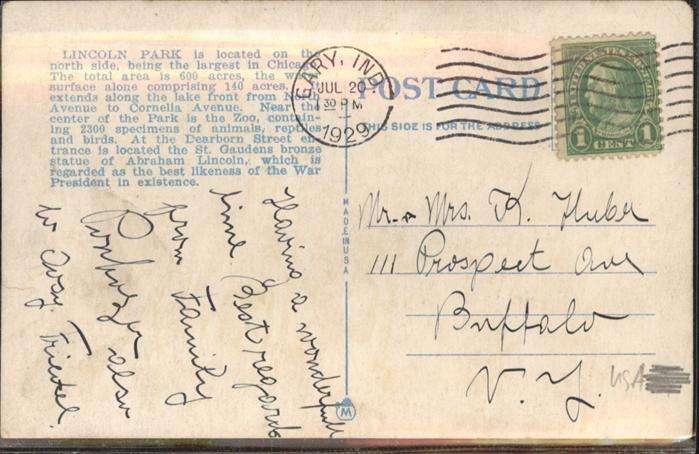 LINCOLN PARK is located on the
north side, being the largest in Chicago.
The total area is 600 acres, the water
surface alone comprising 140 acres. It
extends along the lake front from North
Avenue to Cornelia Avenue. Near the
center of the Park is the Zoo, contain-
ing 2300 specimens of animals, reptiles
and birds. At the Dearborn Street en-
trance is located the St. Gaudens bronze
statue of Abraham Lincoln, which is
regarded as the best likeness of the War
President in existence.
GARY, IND.
JUL 20
30 PM
1929
POST CARD
THIS SIDE IS FOR THE ADDRESS
1 CENT 1
MADE IN USA
M
Having a wonderfull
time Best regards
from Family
also
to
Mr. & Mrs. K. Huber
111 Prospect Ave
Buffalo
N.Y.
USA